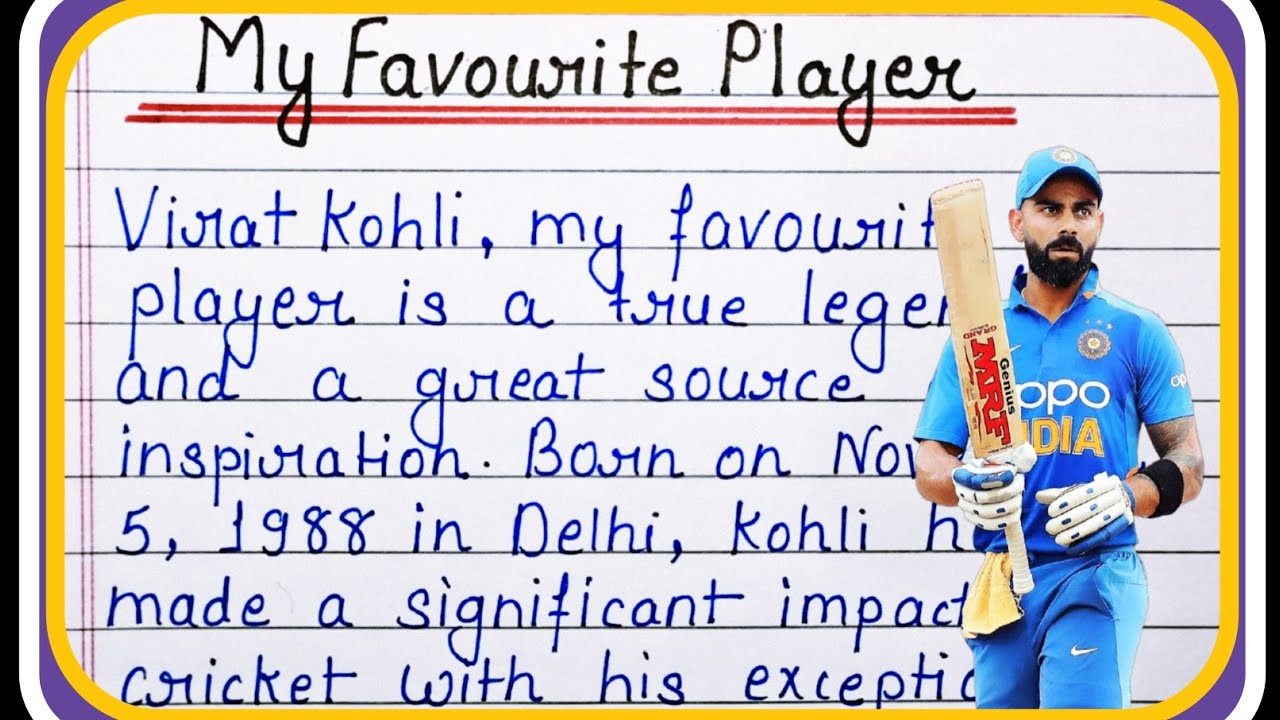 My Favourite Player
Virat Kohli, my favourit
player is a true legen
and a great source
inspiration. Born on Nov
5, 1988 in Delhi, Kohli h
made a significant impact
cricket with his exceptio
GRAND
MRF
Genius
oppo
INDIA
oppo